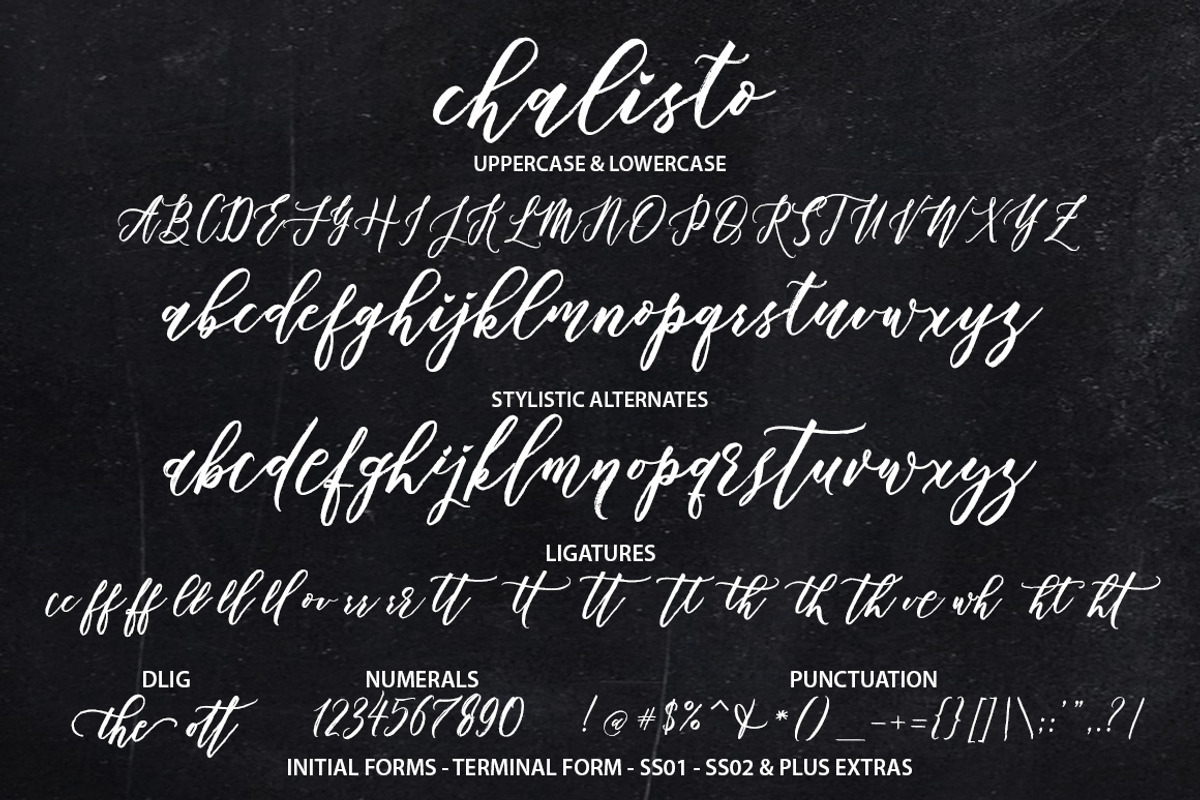 chalisto
UPPERCASE & LOWERCASE
ABCDEFGHIJKLMNOPQRSTUVWXYZ
abcdefghijklmnopqrstuvwxyz
STYLISTIC ALTERNATES
abcdefghijklmnopqrstuvwxyz
LIGATURES
cc ff ff ll ll ll ov rr rr tt tt tt tt th th th ve wh ht ht
DLIG NUMERALS PUNCTUATION
the ott 1234567890 ! @ # $ % ^ & * () _ - + = {} [] | \ ; : ' " , . ? |
INITIAL FORMS - TERMINAL FORM - SS01 - SS02 & PLUS EXTRAS